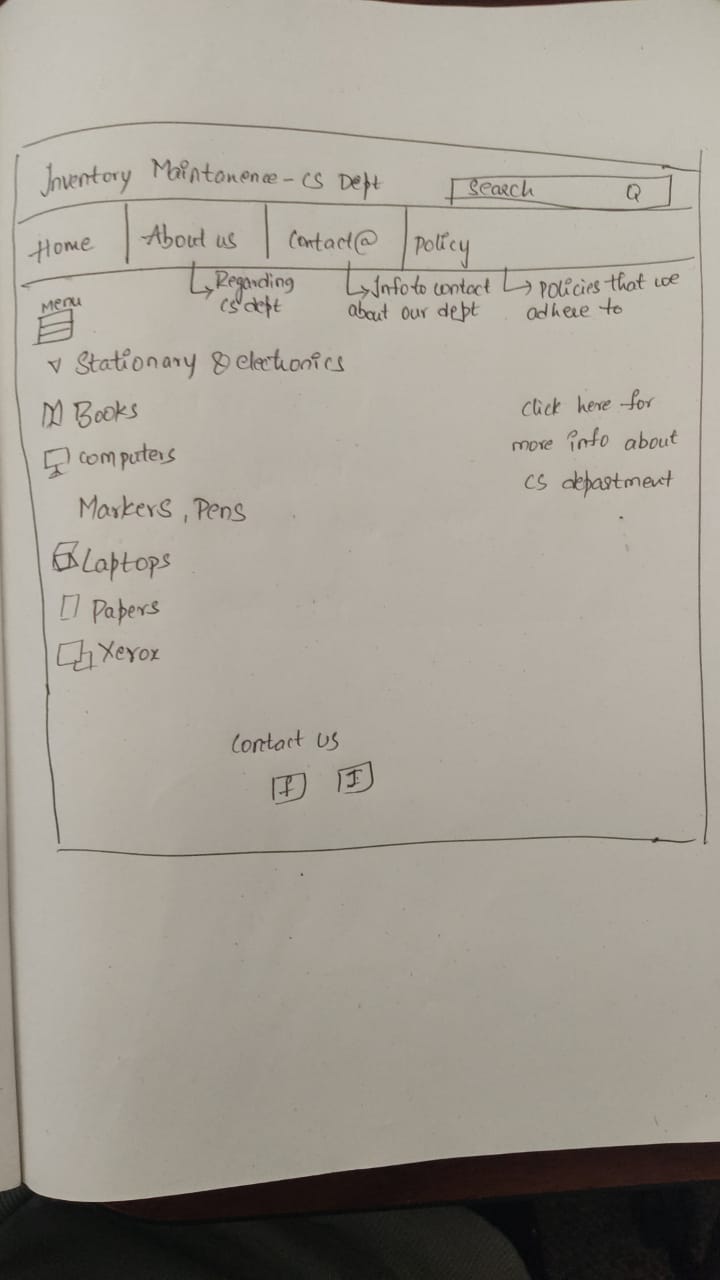 Inventory Maintanence - CS Dept
Search Q
Home About us Contact@ Policy
Regarding CS dept
Info to contact about our dept
policies that we adhere to
Menu
Stationary & electronics
Books
computers
Markers, Pens
Laptops
Papers
Xerox
Click here for
more info about
CS department
Contact us
f I